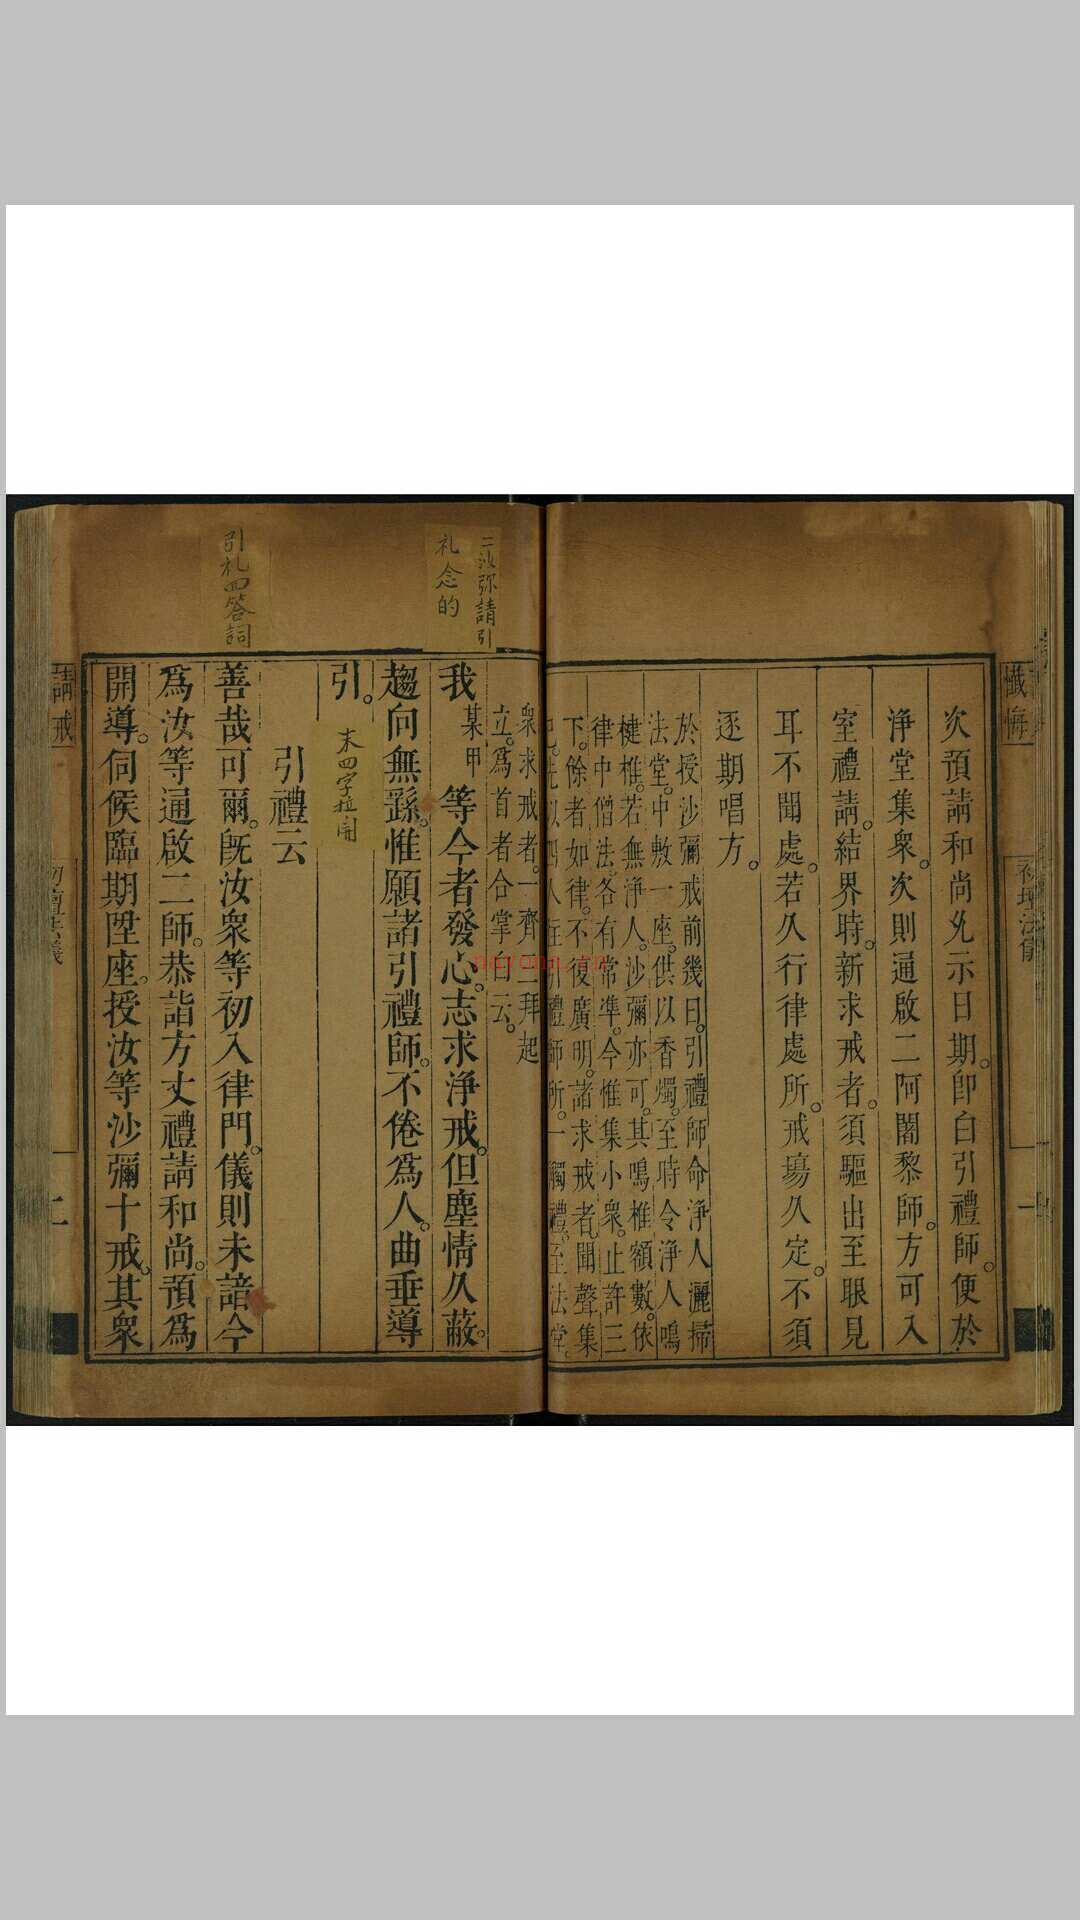 懺悔
次預請和尚允示日期。即白引禮師。便於
浄堂集衆。次則通啟二阿闍黎師。方可入
室禮請。結界時。新求戒者。須驅出至眼見
耳不聞處。若久行律處所。戒場久定。不須
逐期唱方。
於授沙彌戒前幾日。引禮師命浄人灑掃
法堂。中敷一座。供以香燭。至時令浄人鳴
楗椎。若無浄人。沙彌亦可。其鳴椎額數。依
律中僧法。各有常準。今惟集小衆。止許三
下。餘者如律。不復廣明。諸求戒者。聞聲集
人在引禮師所。一觸禮。至法堂。
衆求戒者。一齊三拜起
立。為首者合掌白云。
我某甲等今者發心。志求浄戒。但塵情久蔽。
趨向無繇。惟願諸引禮師。不倦為人。曲垂導
引。
引禮云
善哉可爾。既汝衆等初入律門。儀則未諳今
為汝等通啟二師。恭詣方丈禮請和尚。預為
開導。伺候臨期陞座。授汝等沙彌十戒。其衆
二沙弥請引
礼念的
末四字拉開
引礼四答詞
請戒
二
nayona.cn